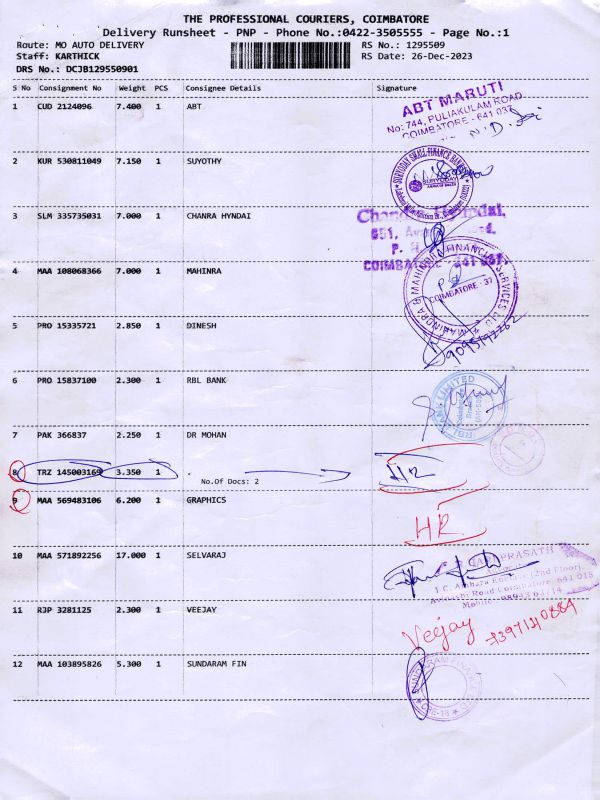 THE PROFESSIONAL COURIERS, COIMBATORE
Delivery Runsheet - PNP - Phone No.:0422-3505555 - Page No.:1
Route: MO AUTO DELIVERY RS No.: 1295509
Staff: KARTHICK RS Date: 26-Dec-2023
DRS No.: DCJB129550901
S No Consignment No Weight PCS Consignee Details Signature
1 CUD 2124096 7.400 1 ABT
ABT MARUTI
No: 744, PULIAKULAM ROAD
COIMBATORE - 641 037
2 KUR 530811049 7.150 1 SUYOTHY
3 SLM 335735031 7.000 1 CHANRA HYNDAI
COIMBATORE
4 MAA 108068366 7.000 1 MAHINRA
COIMBATORE - 37
5 PRO 15335721 2.850 1 DINESH
6 PRO 15837100 2.300 1 RBL BANK
LIMITED
7 PAK 366837 2.250 1 DR MOHAN
8 TRZ 145003169 3.350 1 .
No.Of Docs: 2
HR
9 MAA 569483106 6.200 1 GRAPHICS
HR
10 MAA 571892256 17.000 1 SELVARAJ
PRASATH
(2nd Floor),
Road Coimbatore 641 018
Mobile:
11 RJP 3281125 2.300 1 VEEJAY
Veejay
12 MAA 103895826 5.300 1 SUNDARAM FIN